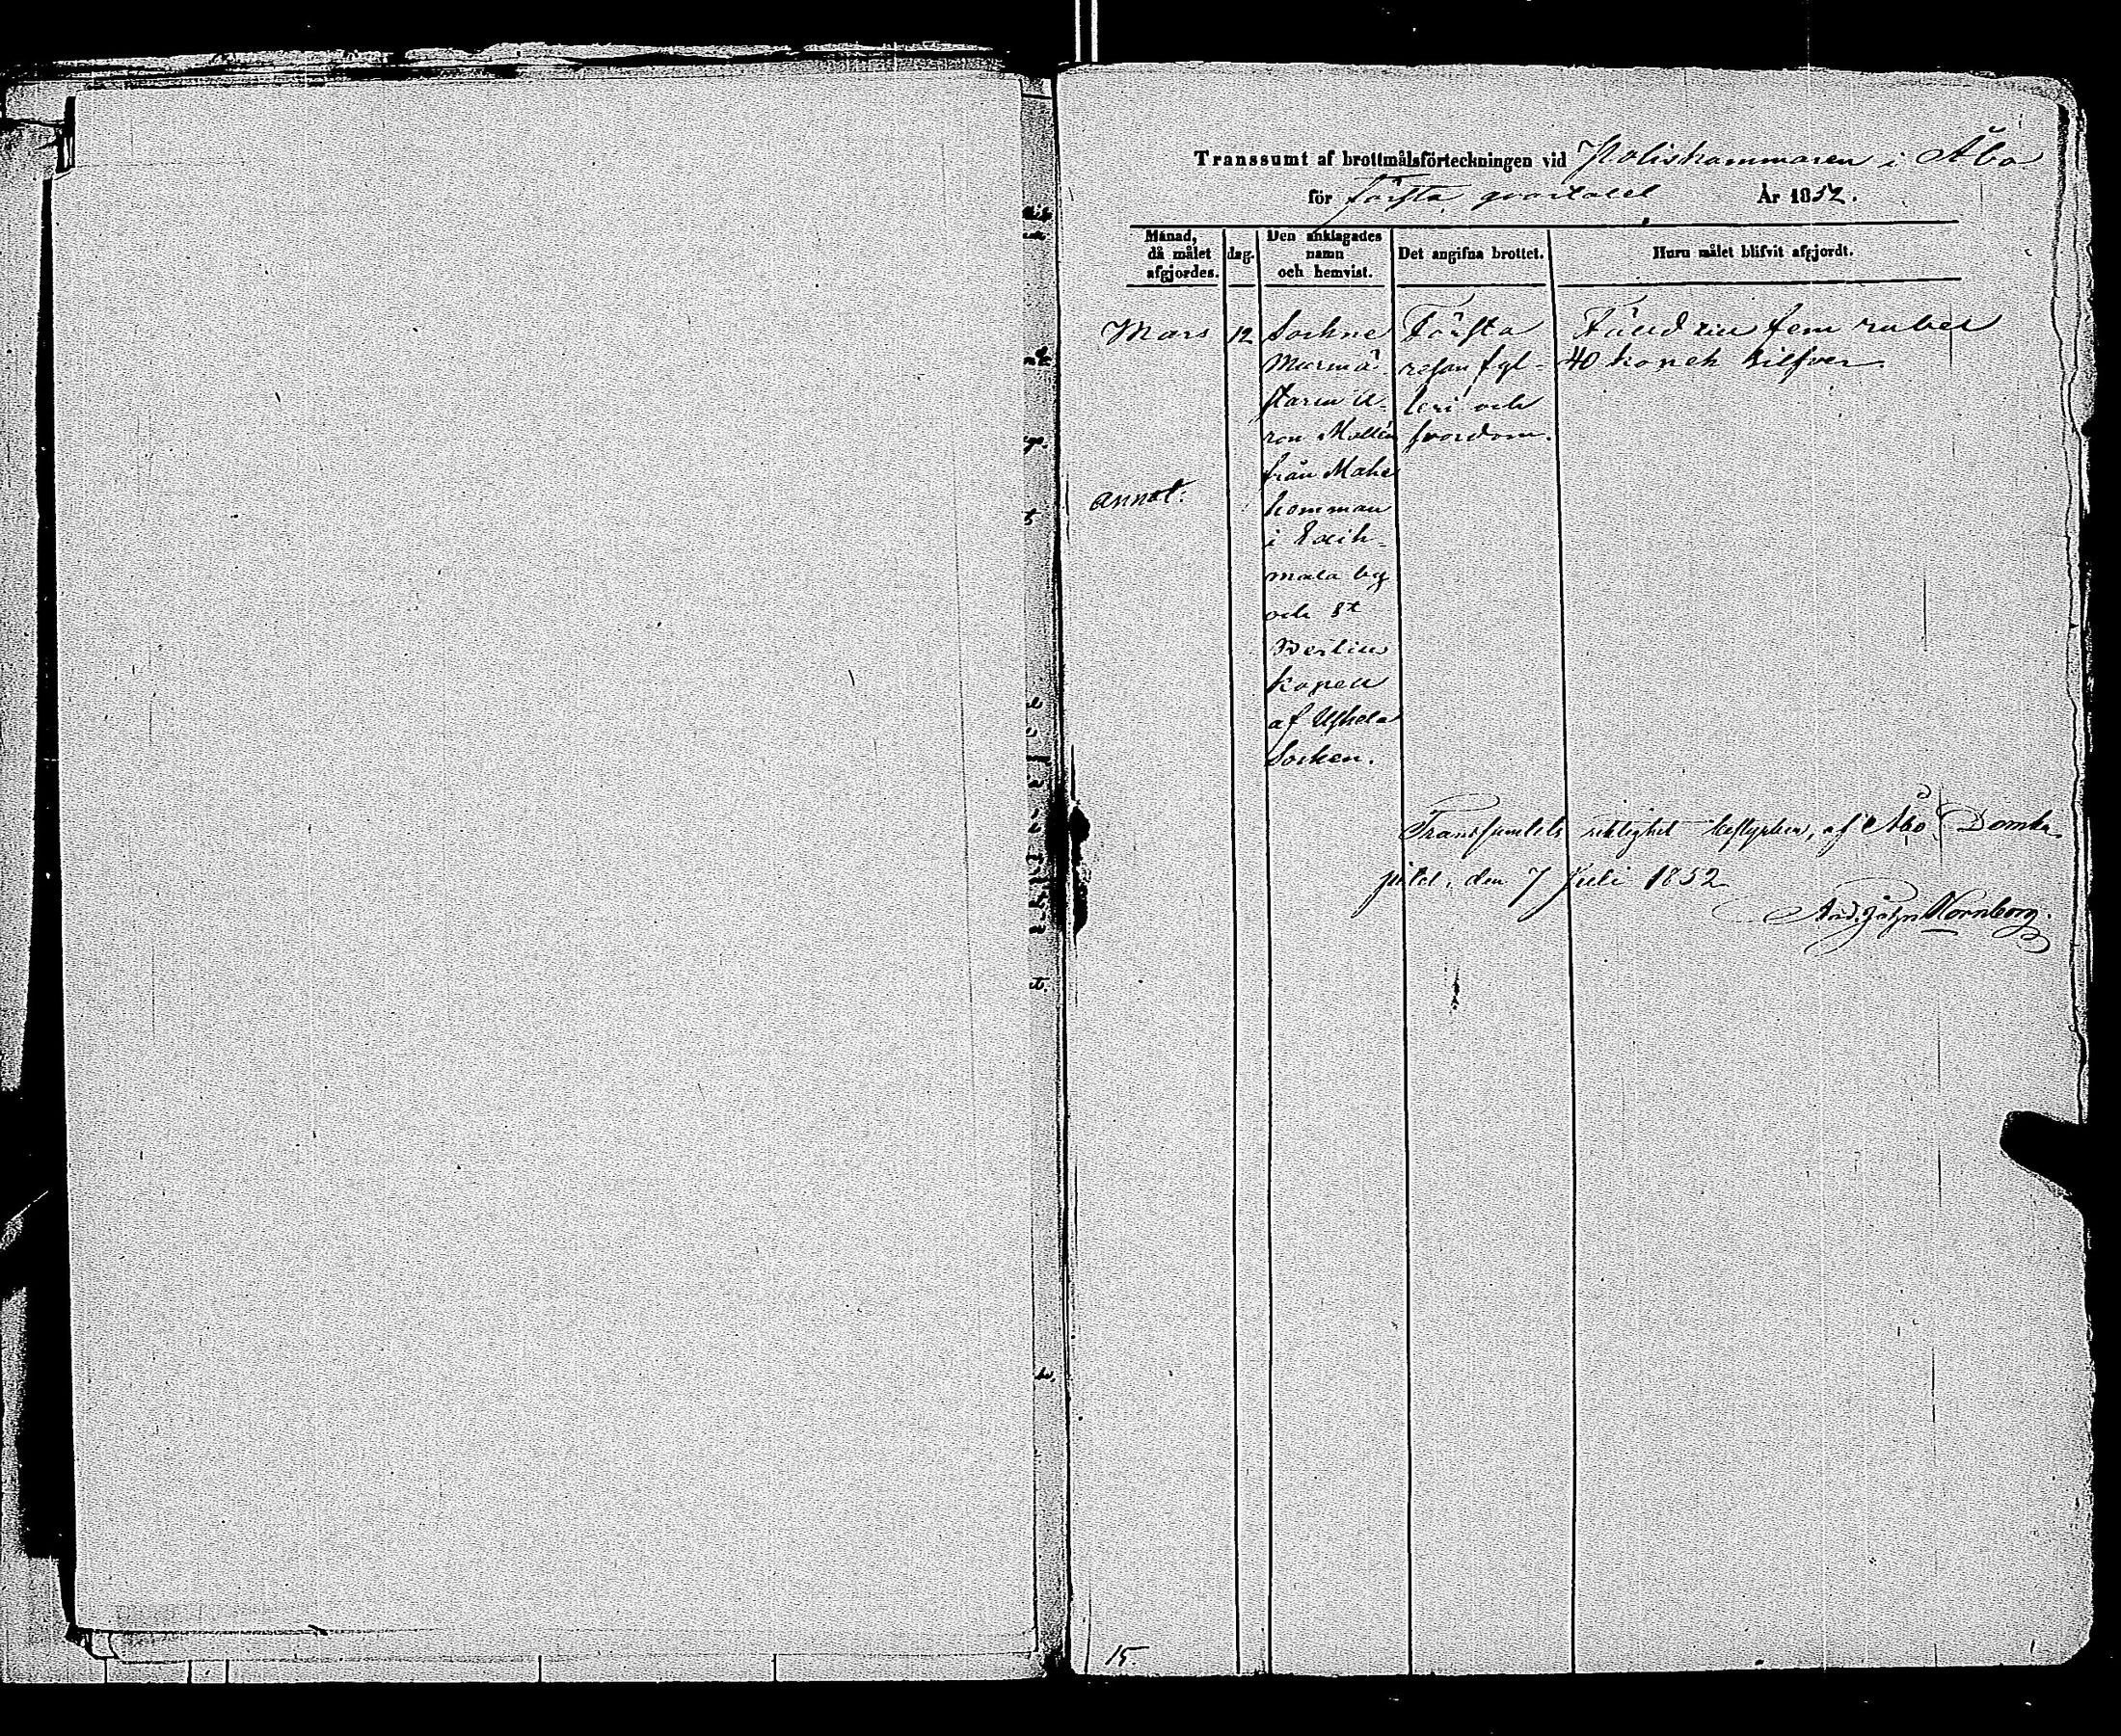 Transsumt af brottmålsförteckningen vid Poliskammaren i Åbo
för Första qvartalet År 1852.
Månad, då målet afgjordes.
dag.
Den anklagades namn och hemvist.
Det angifna brottet.
Huru målet blifvit afgjordt.
Mars 12
Sockne
Murmä-
staren A-
ron Mollén
från Make
komman
i
mala by
och St
Bertils
kapell
af Uskela
Socken.
Första
resan fyl-
leri och
svordom.
Fäld till fem rubel
40 kopek silfver.
Annot:
Transsumtets riktighet bestyrker, af Åbo Domka-
pitel, den 7 Juli 1852
And. Joh. Kornborg.
15.